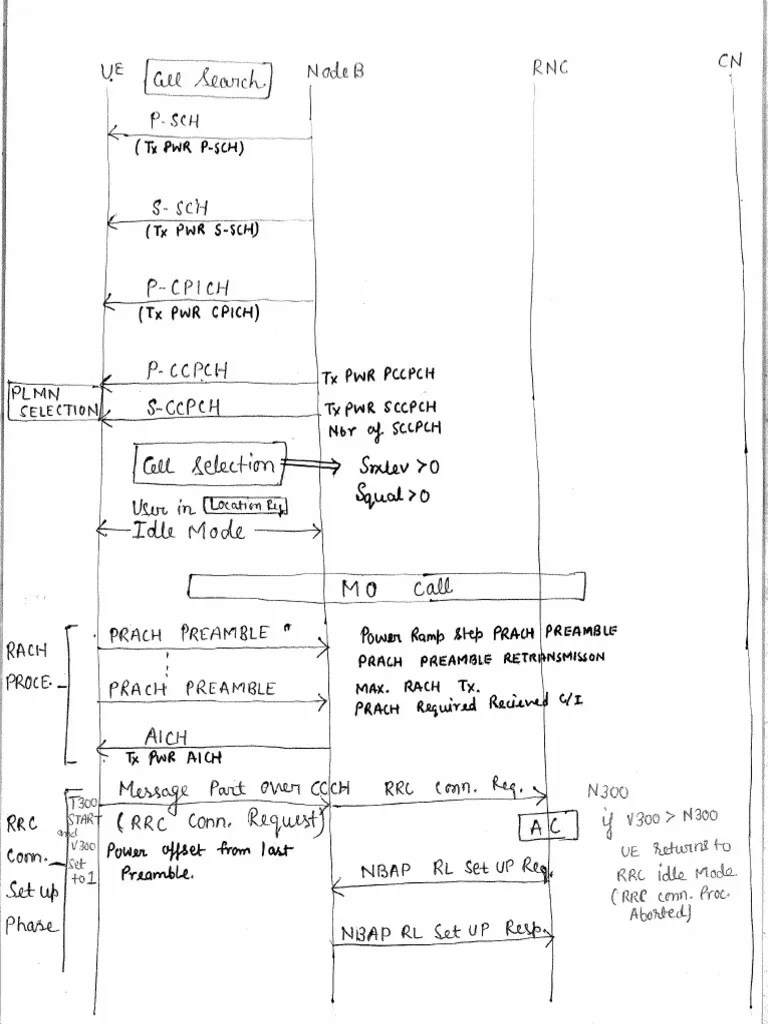 UE
Cell Search
NodeB
RNC
CN
P-SCH
(Tx PWR P-SCH)
S-SCH
(Tx PWR S-SCH)
P-CPICH
(Tx PWR CPICH)
P-CCPCH
Tx PWR PCCPCH
PLMN
SELECTION
S-CCPCH
Tx PWR SCCPCH
Nbr of SCCPCH
Cell Selection
Srxlev >0
Squal >0
User in Location Reg
Idle Mode
MO Call
RACH
PROCE.
PRACH PREAMBLE
Power Ramp Step PRACH PREAMBLE
PRACH PREAMBLE RETRANSMISSON
PRACH PREAMBLE
MAX. RACH Tx.
PRACH Required Recieved C/I
AICH
Tx PWR AICH
RRC
Conn.
Set up
Phase
T300
START
and
V300
Set
to 1
Message Part over CCCH
(RRC Conn. Request)
Power offset from last
Preamble.
RRC Conn. Req.
AC
N300
if V300 > N300
UE Returns to
RRC idle Mode
(RRC conn. Proc.
Aborted)
NBAP RL Set UP Req.
NBAP RL Set UP Resp.